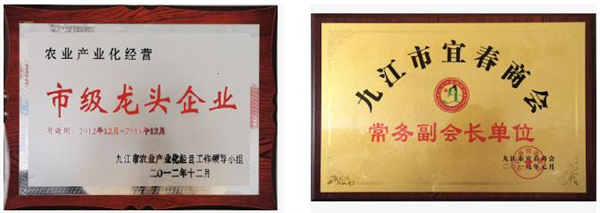 农业产业化经营
市级龙头企业
有效期：2012年12月-2015年12月
九江市农业产业化经营工作领导小组
二〇一二年十二月
九江市宜春商会
常务副会长单位
九江市宜春商会
二〇一九年元月